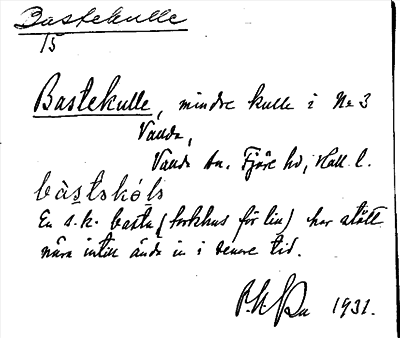 Bastekulle
15
Bastekulle, mindre kulle i No 3
Vallda,
Vallda sn. Fjäre hd, Hall. l.
bàstskóls
En s.k. bastu (torkhus för lin) har stått
nära intill ända in i senare tid.
1931.